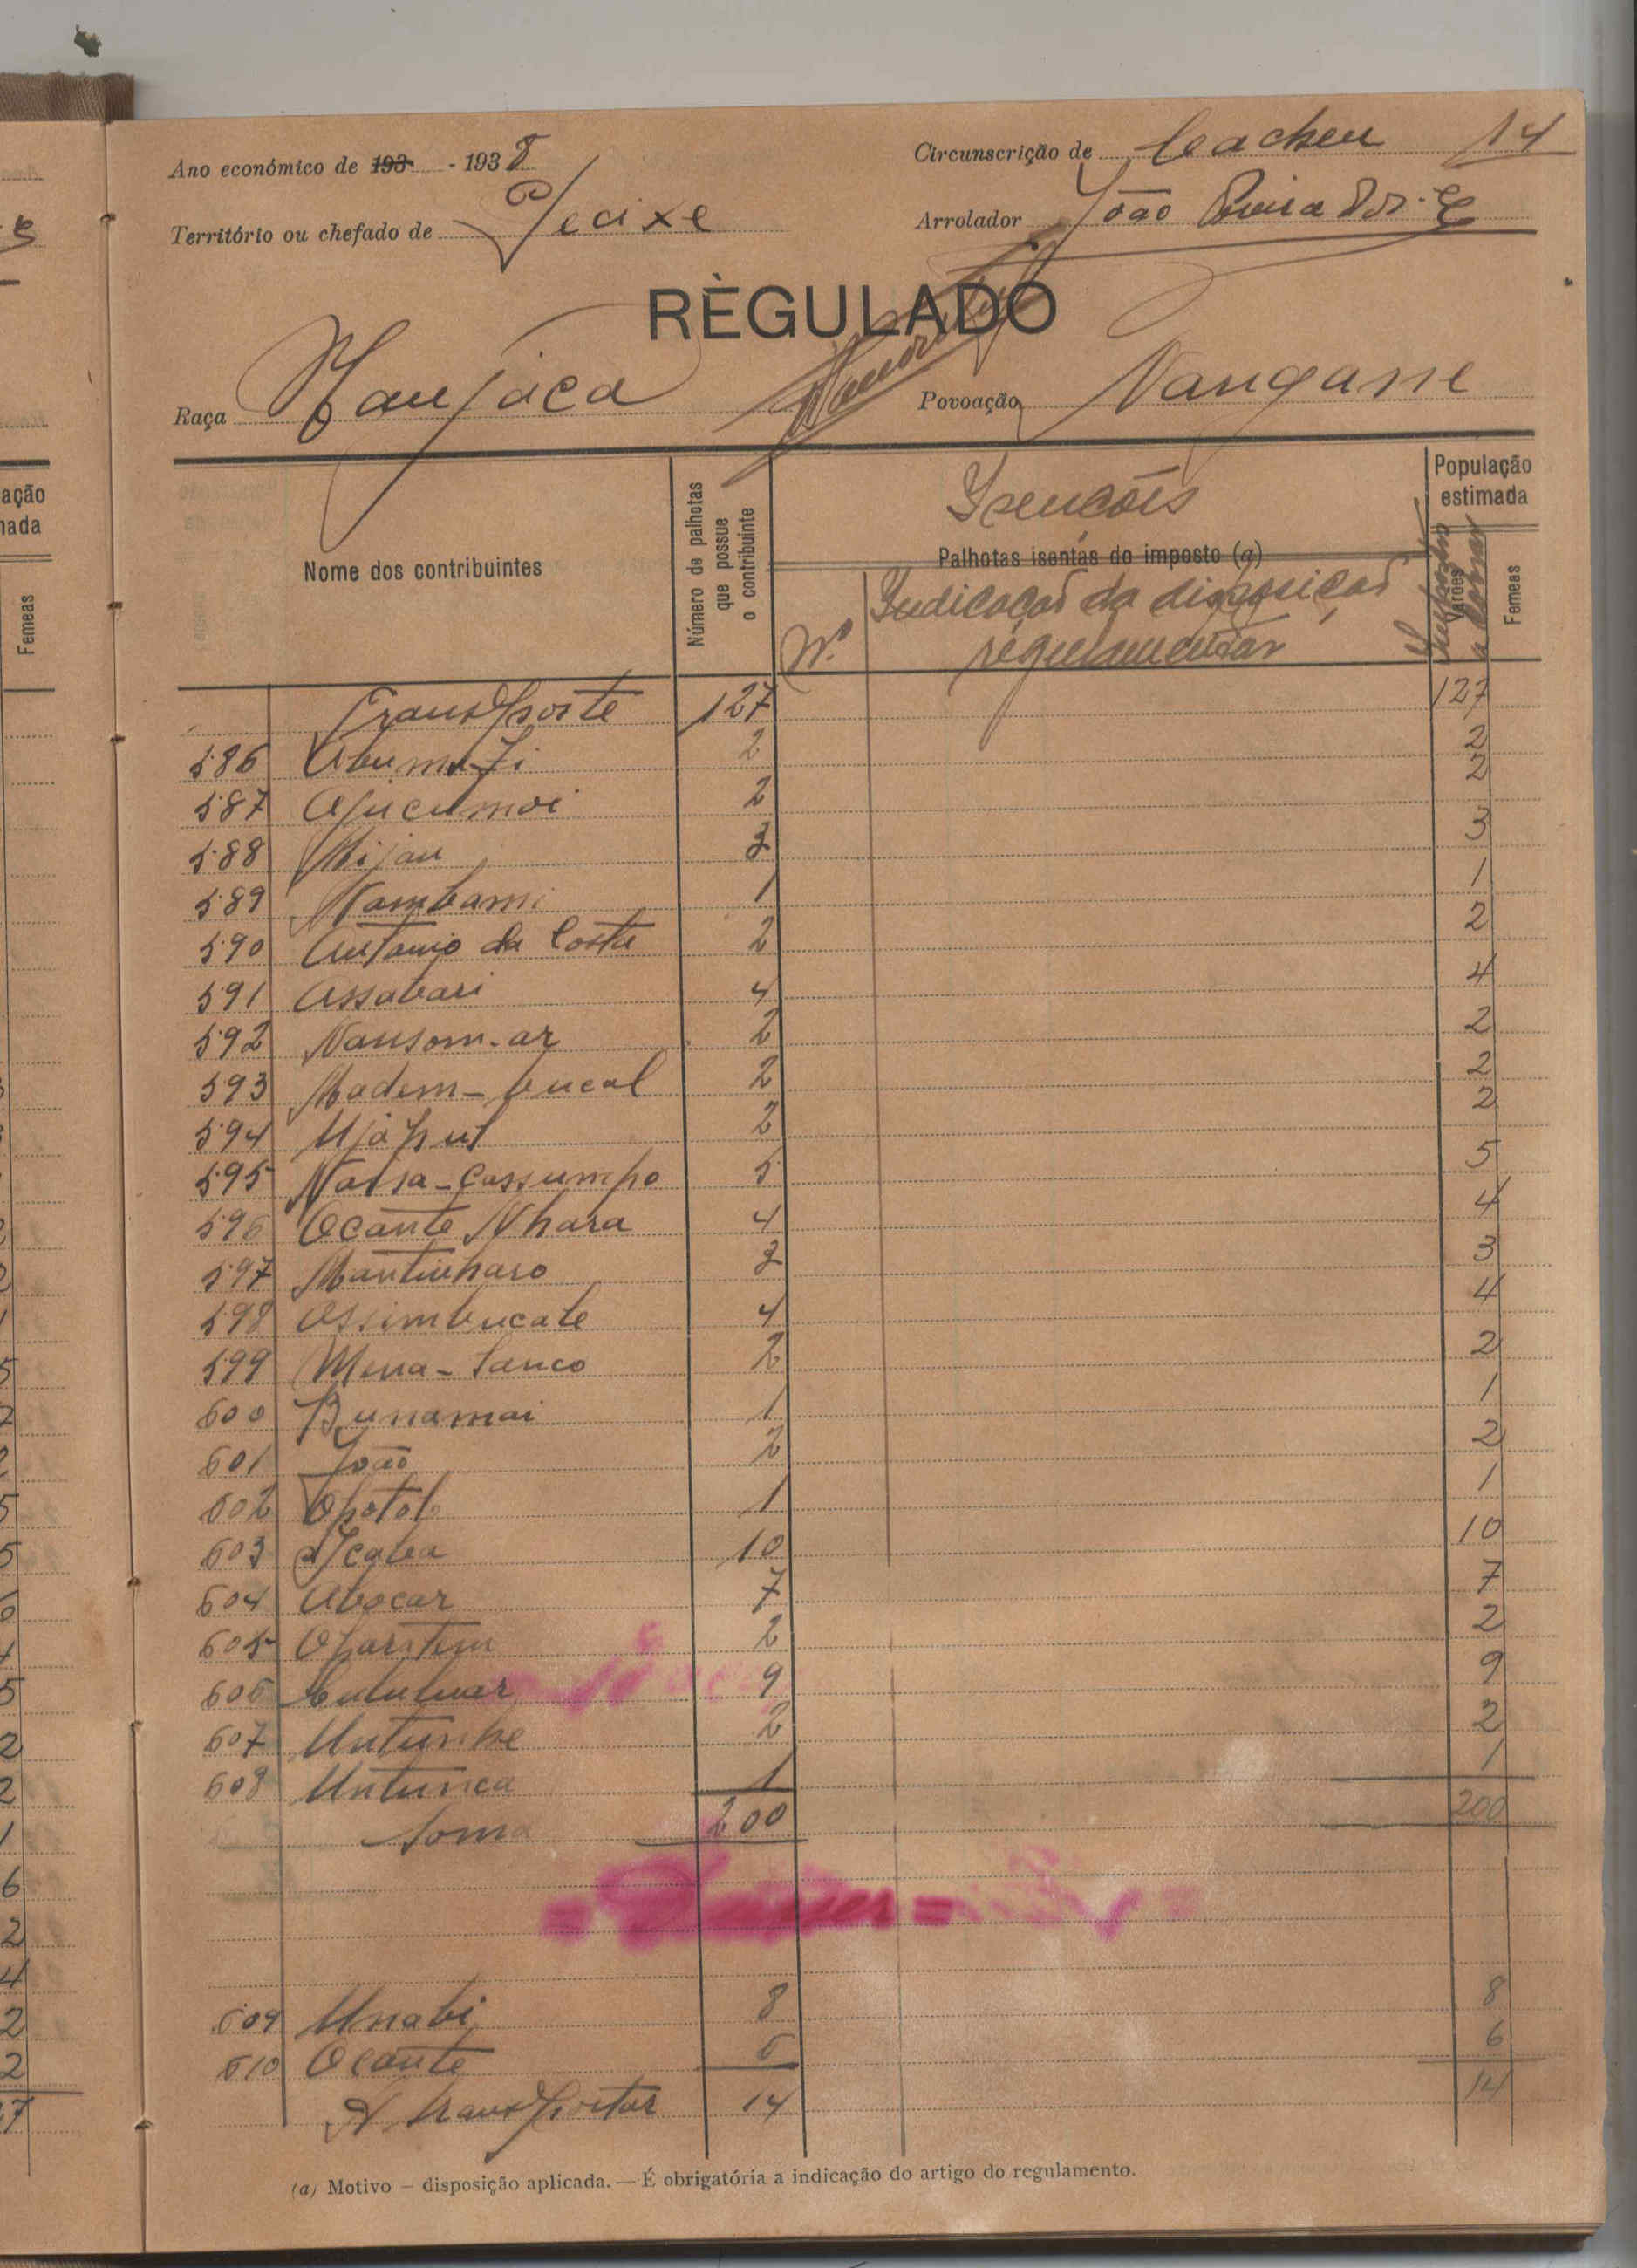 Ano económico de 193 - 1938
Circunscrição de Cacheu 14
Território ou chefado de Pecixe
Arrolador João
RÈGULADO
Raça Manjaca
Povoação Nangane
Nome dos contribuintes
Número de palhotas que possue o contribuinte
Isenções
Palhotas isentas do imposto (a)
Nº.
Indicação da disposição
regulamentar
População
estimada
Femeas
Transporte 127 127
586 2 2
587 Ajucumoi 2 2
588 Mijau 3 3
589 Nambami 1 1
590 Antonio da Costa 2 2
591 Assabari 4 4
592 Nansom-ar 2 2
593 Madem-bucal 2 2
594 Ujáput 2 2
595 Naisa-Cassumpo 5 5
596 Ocante Nhara 4 4
597 Mantinharo 3 3
598 Assimbucate 4 4
599 Mena-Sanco 2 2
600 Bunamai 1 1
601 João 2 2
602 Opotolo 1 1
603 10 10
604 Abocar 7 7
605 2 2
606 9 9
607 Untunhe 2 2
608 Untunca 1 1
Soma 200 200
609 Unabi 8 8
610 Ocante 6 6
A transportar 14 14
(a) Motivo — disposição aplicada. — É obrigatória a indicação do artigo do regulamento.
ação
ada
Femeas